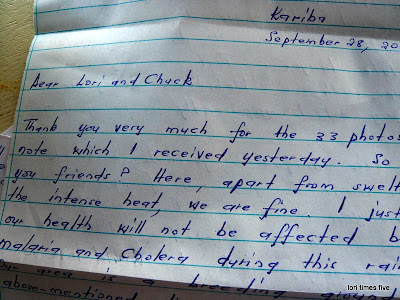 Kariba
September 28, 20
Dear Lori and Chuck
Thank you very much for the 33 photos
note which I received yesterday. So
you friends? Here, apart from swelt
the intense heat, we are fine. I just
our health will not be affected b
malaria and Cholera during this rai
Our area is a breeding
above-mentioned
lori times five